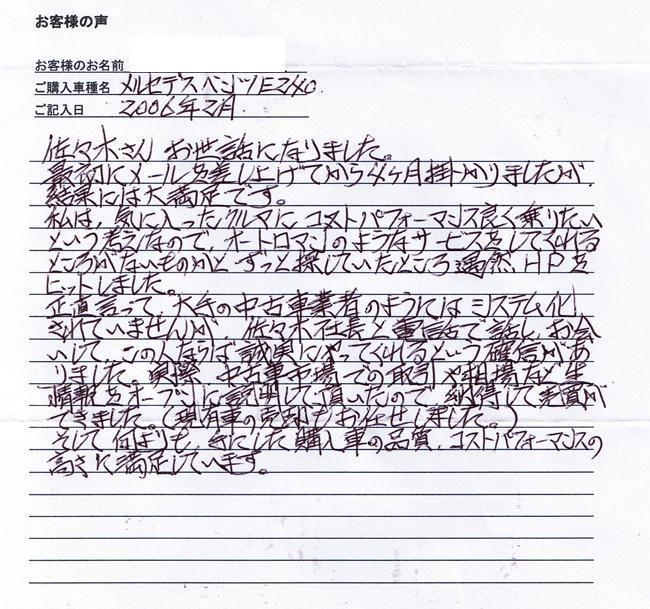 お客様の声
お客様のお名前
ご購入車種名 メルセデスベンツE240.
ご記入日 2006年2月.
佐々木さん お世話になりました。
最初にメールを差し上げてから4ヶ月掛かりましたが、
結果には大満足です。
私は、気に入ったクルマに コストパフォーマンス良く乗りたい
という考えなので、オートロマンのようなサービスをしてくれる
ところがないものかと ずっと探していたところ 偶然 HPを
ヒットしました。
正直言って、大手の中古車業者のようには システム化
されていませんが、佐々木社長と電話で話し、お会
いして、この人ならば 誠実にやってくれるという確信があ
りました。実際、中古車市場での取引や相場など生
情報をオープンに説明して頂いたので、納得して売買が
できました。(現有車の売却もお任せしました。)
そして何よりも、手にした購入車の品質、コストパフォーマンスの
高さに満足しています。